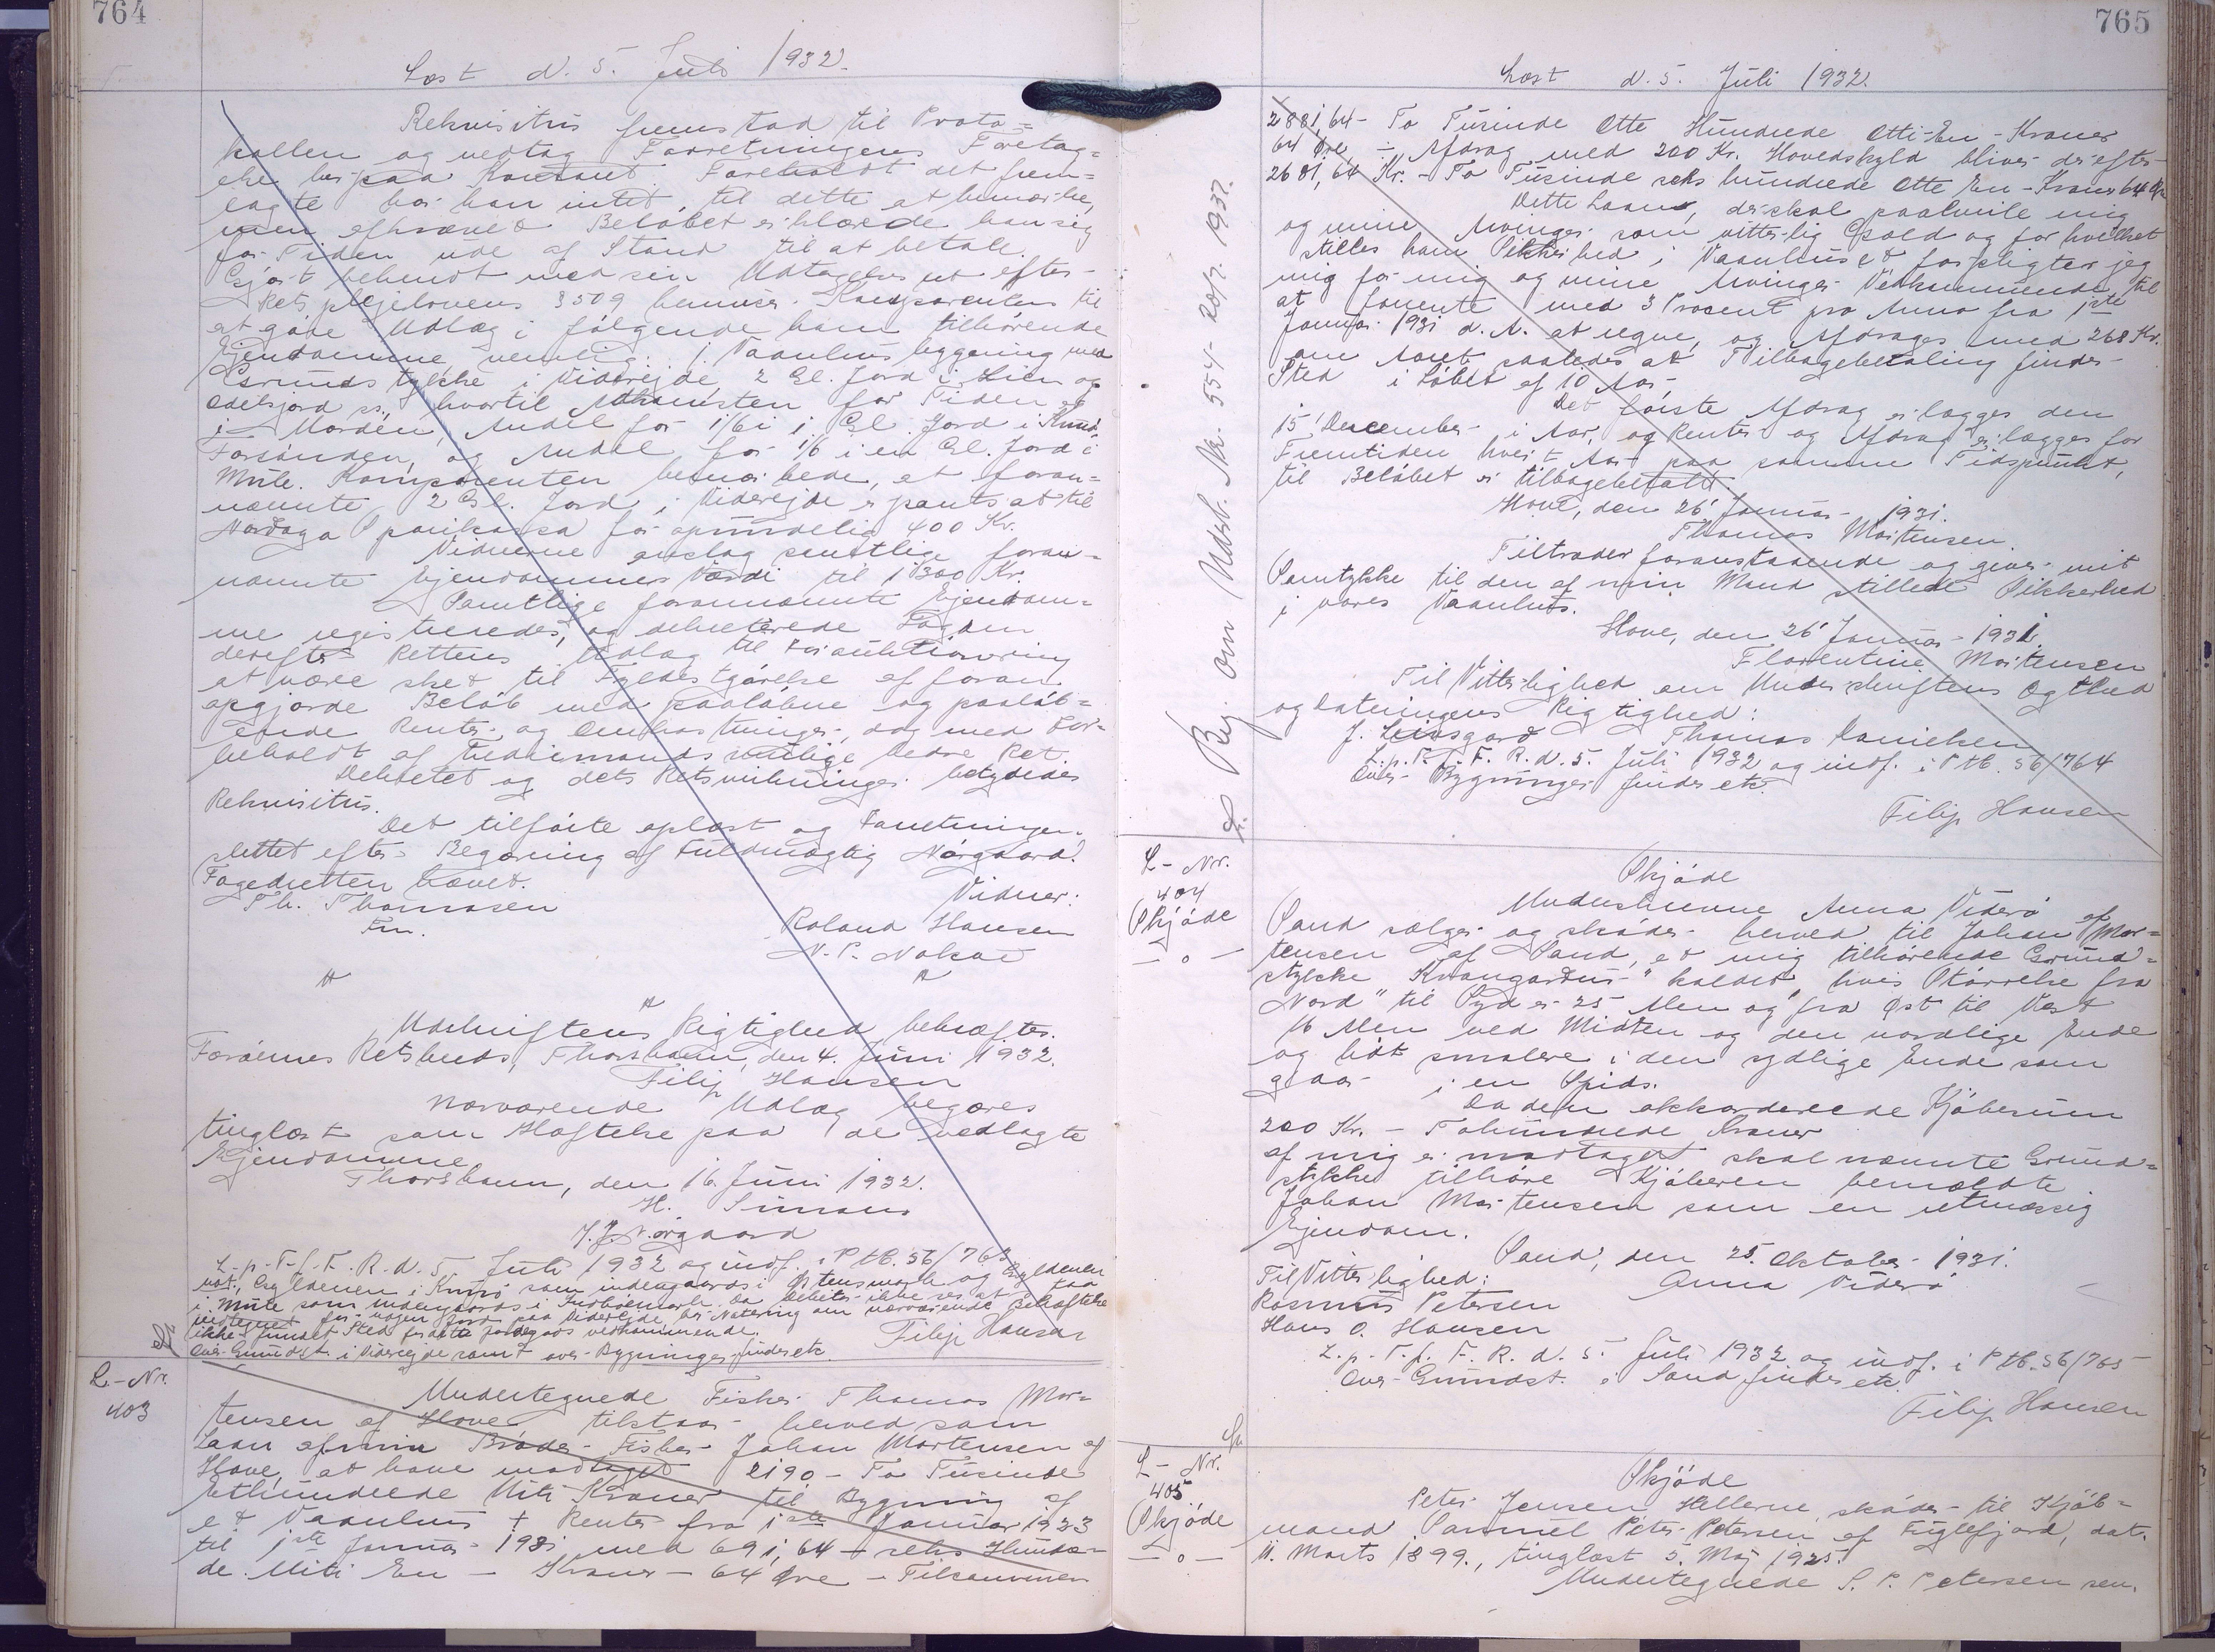 764
Læst d. 5. Juli 1932.
Rekvisitus fremstod til Proto=
kollen og vedtog Forretningens Foretag=
else her paa Kontoret. Foreholdt det frem=
lagte har han intet til dette at bemærke,
men efkrævet Beløbet erklærede han sig
for Tiden ude af Stand til at betale.
Gjort bekendt med sin Udtagelsesret efter
Retsplejelovens § 509 henviser Komparenten til
at gøre Udlæg i følgende ham tilhørende
Ejendomme nemlig: 1. Vaanhusbygning med
Grundstykke i Viderejde, 2 Gl. Jord i Lien og
Odelsjord ss., hvortil Adkomsten for Tiden er
i Orden, Andel for 1/6 i 1 Gl. Jord i Kunø,
Forsønden, og Andel for 1/6 i en Gl. Jord i
Mule. Komparenten bemærkede, at foran=
nævnte 2 Gl. Jord i Viderejde er pantsat til
Nordoya Sparikassa for oprindelig 400 Kr.
Vidnerne anslog samtlige foran=
nævnte Ejendommes Værdi til 1300 Kr.
Samtlige forannævnte Ejendom=
me registreredes, og dekreterede Fogden
derefter Rettens Udlæg til Forauktionering
at være sket til Fyldestgørelse af foran
opgjorde Beløb med paaløbne og paaløb=
ende Renter og Omkostninger, dog med For=
behold af Trediemands retlige bedre Ret.
Dekretet og dets Retsvirkninger betydedes
Rekvisitus.
Det tilførte oplæst og Forretningen
sluttet efter Begæring af Fuldmægtig Nørgaard.
Fogedretten hævet.
Th. Thomasen
Fm.
Vidner:
Roland Hansen
N. P. Nolsøe
Udskriftens Rigtighed bekræftes.
Færøernes Retskreds, Thorshavn, den 4. Juni 1932.
Filip Hansen
Nærværende Udlæg begæres
tinglæst som Hæftelse paa de udlagte
Ejendomme
Thorshavn, den 16. Juni 1932.
H. Simons
J. J. Nørgaard
L. p. T. f. F. R. d. 5. Juli 1932 og indf. i Ptb. 56/763
Filip Hansen
Over Grundst. i Viderejde samt over Bygninger findes etc.
L.-Nr.
403
Undertegnede Fisker Thomas Mor=
tensen af Hove tilstaar herved som
Laan af min Broder Fisker Johan Mortensen af
Hove, at have modtaget 2190 - To Tusinde
Ethundrede Niti Kroner til Bygning af
et Vaanhus + Renter fra 1ste Januar 1923
til 1ste Januar 1931 med 691,64 - seks Hundre=
de Niti En - Kroner - 64 Øre - Tilsammen
765
Læst d. 5. Juli 1932.
2881,64 - To Tusinde Otte Hundrede Otti-En - Kroner
64 Øre ÷ Afdrag med 200 Kr. Hovedskyld bliver derefter
2681,64 Kr. - To Tusinde seks hundrede Otte En - Kroner 64 Ør
Dette Laan, der skal paahvile mig
og mine Arvinger som vitterlig Gæld og for hvilket
stilles ham Sikkerhed i Vaanhuset forpligter jeg
mig for mig og mine Arvinger Vedkommende til
at forrente med 3 Procent pro Anno fra 1ste
Januar 1931 d. A. at regne, og Afdrages med 268 Kr.
om Aaret saaledes at Tilbagebetaling finder
Sted i Løbet af 10 Aar.
Det første Afdrag erlægges den
15' December i Aar, og Renter og Afdrag erlægges for
Fremtiden hvert Aar paa samme Tidspunkt,
til Beløbet er tilbagebetalt
Hove, den 26' Januar 1931.
Thomas Mortensen
Tiltræder foranstaaende og giver mit
Samtykke til den af min Mand stillede Sikkerhed
i vores Vaanhus.
Hove, den 26' Januar 1931
Florentine Mortensen
Til Vitterlighed om Underskriftens Ægthed
og Dateringens Rigtighed:
J. Leisgard Thomas Danielsen
L. p. T. f. F. R. d. 5. Juli 1932 og indf. i Ptb. 56/764
Over Bygninger findes etc.
Filip Hansen
Bg. om Udsk. Nr. 554 - 20/7. 1937.
L.-Nr.
404
Skjøde
— o —
Skjøde
Underskrevne Anna Viderø af
Sand sælger og skøder herved til Johan Mor=
tensen af Sand, et mig tilhørende Grund=
stykke "Kvangardur" kaldet, hvis Størrelse fra
Nord til Syd er 25 Alen og fra Øst til Vest
16 Alen ved Midten og den nordlige Ende
og lidt smalere i den sydlige Ende som
gaar i en Spids.
Da den akkorderede Kjøbesum
200 Kr. - Tohundrede Kroner
af mig er modtaget skal nævnte Grund=
stykke tilhøre Kjøberen bemældte
Johan Mortensen som en retmæssig
Ejendom.
Sand, den 25. Oktober 1931.
Til Vitterlighed: Anna Viderø
Rasmus Petersen
Hans O. Hansen
L. p. T. f. F. R. d. 5. Juli 1932 og indf. i Ptb. 56/765
Over Grundst. i Sand findes etc.
Filip Hansen
L.-Nr.
405
Skjøde
— o —
Skjøde
Peter Jensen Hellerne, skøder til Kjøb=
mand Samuel Peter Petersen af Fuglefjord, dat.
11. Marts 1899., tinglæst 5. Maj 1925.
Undertegnede S. P. Petersen sen.